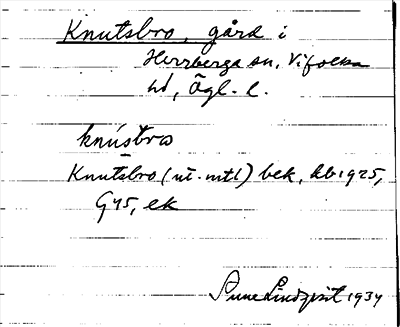 Knutsbro, gård i
Herrberga sn, Vifolka
hd, Ögl. l.
knústbro
Knutsbro (ut. mtl) bek, kb 1925,
G45, ek
Sune Lindqvist 1934